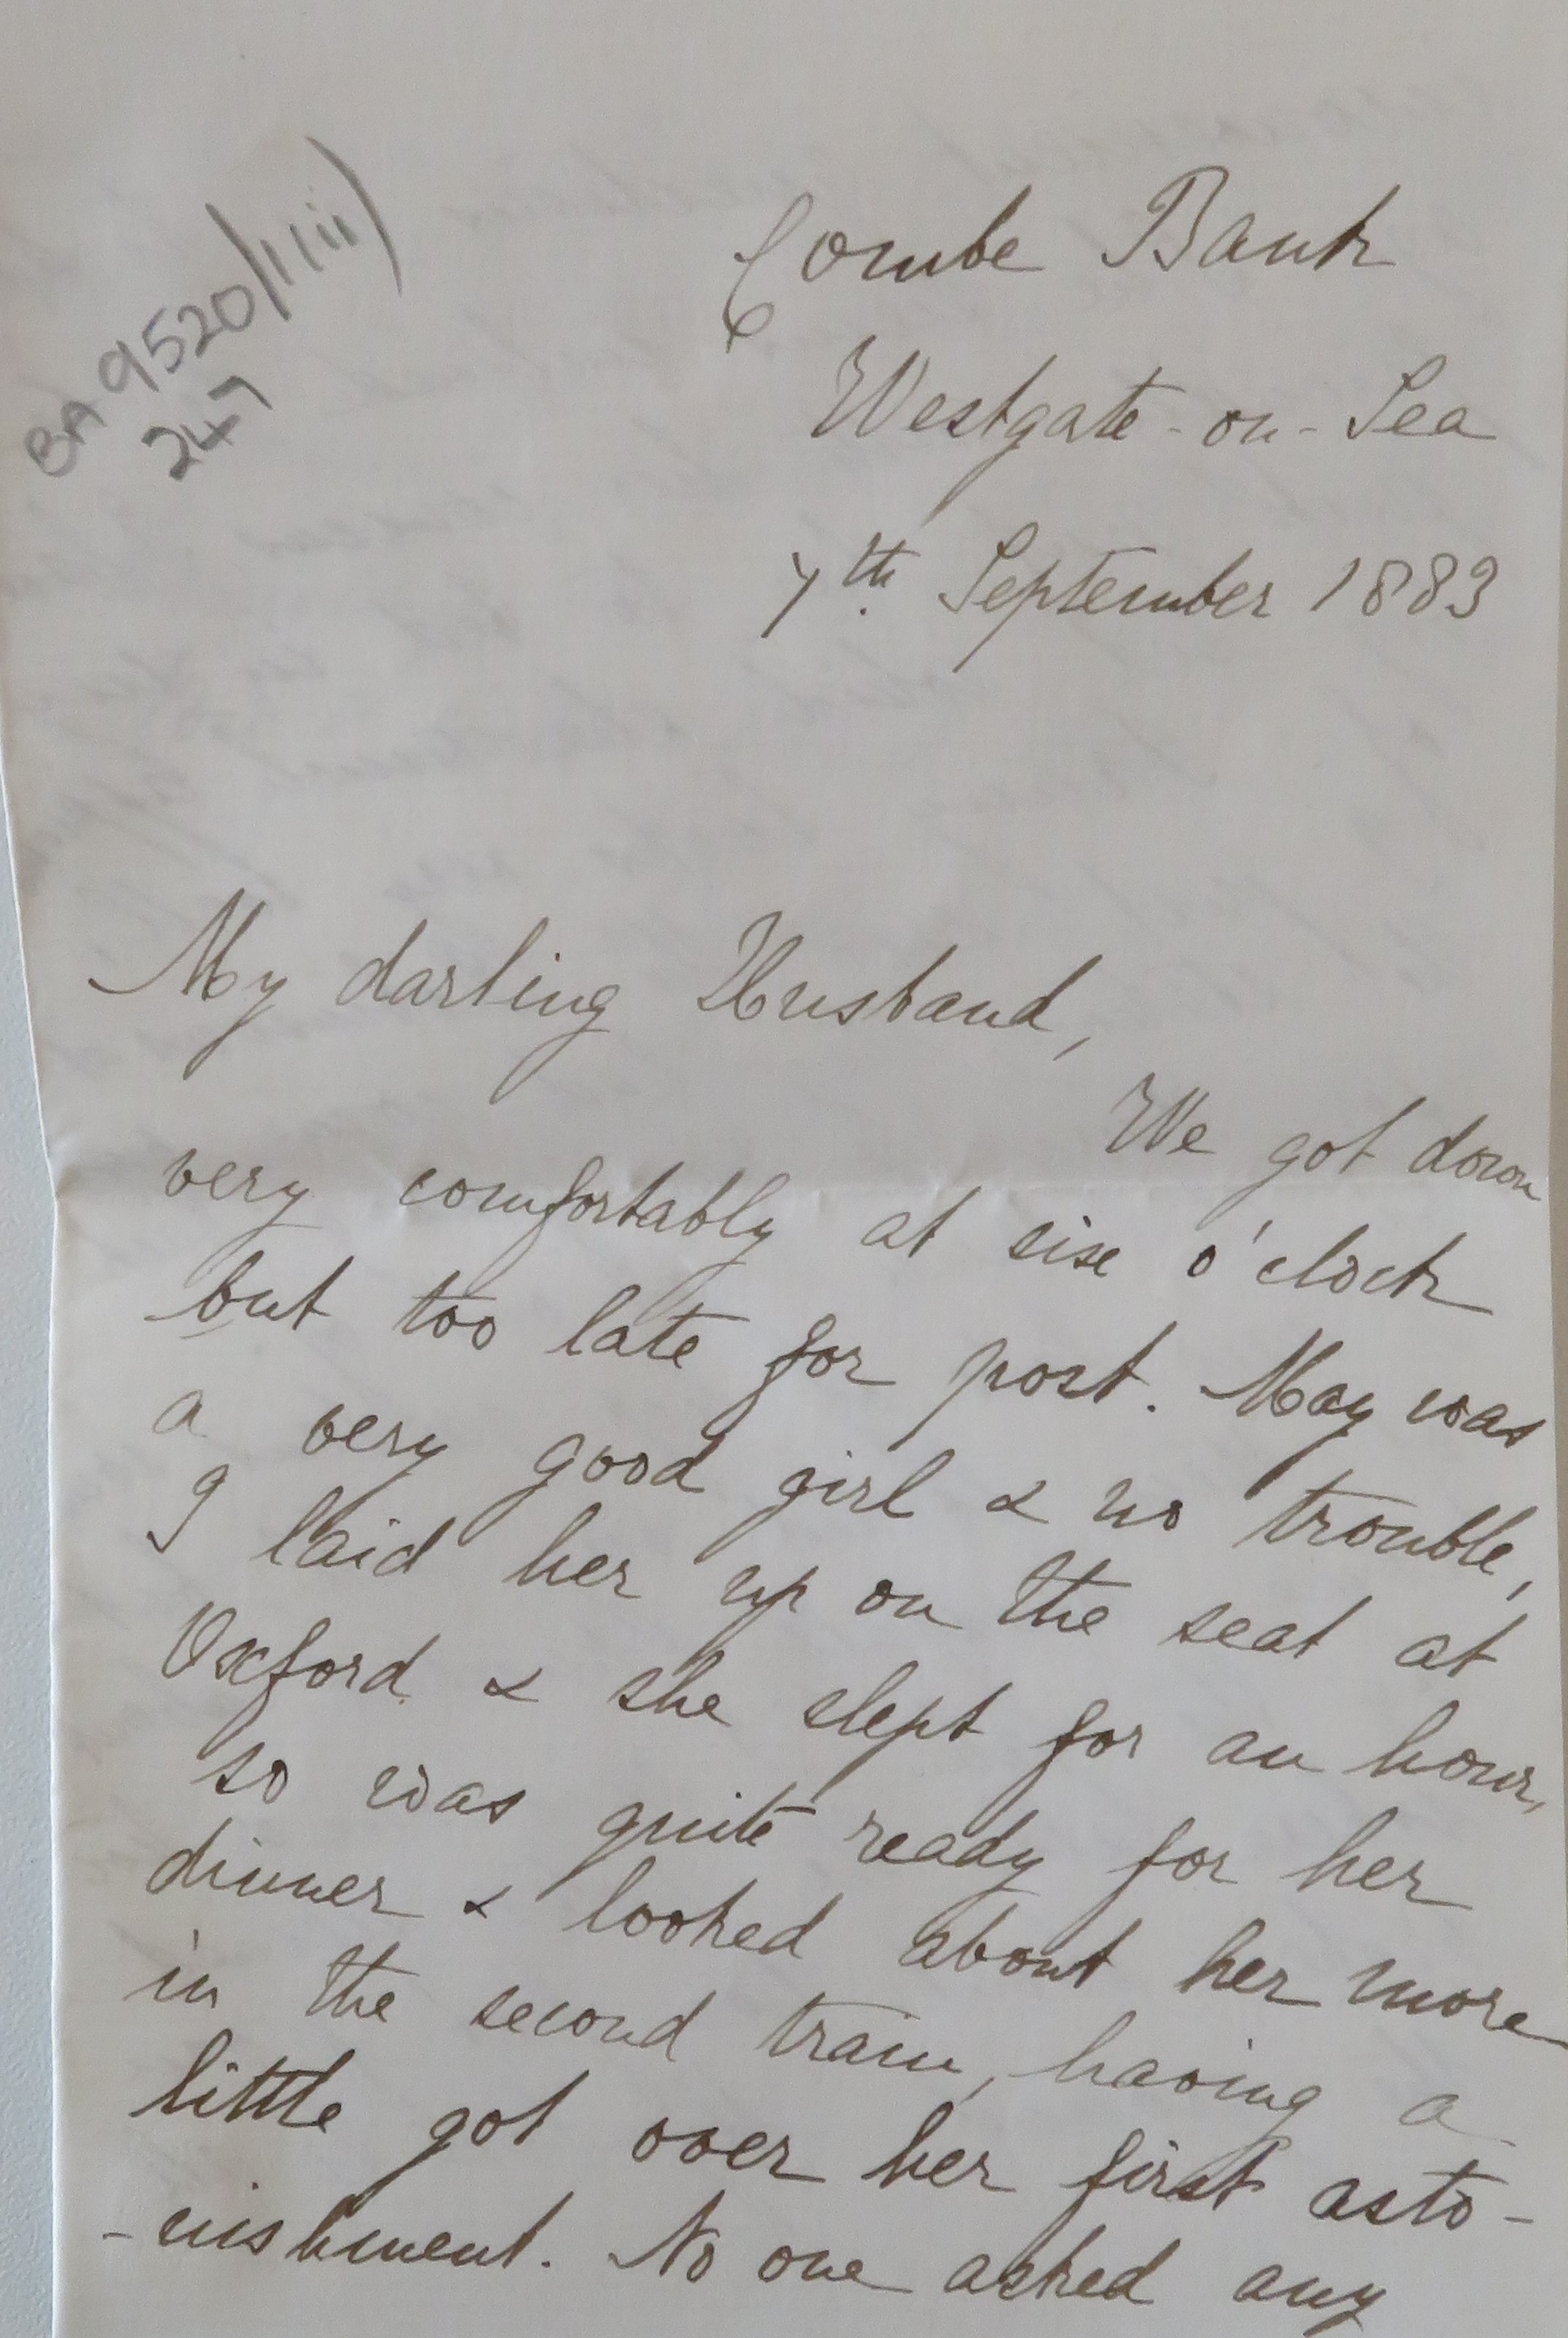 BA 9520/1(ii)
247
Combe Bank
Westgate-on-Sea
7th September 1883
My darling Husband,
We got down
very comfortably at six o'clock
but too late for post. May was
a very good girl & no trouble,
I laid her up on the seat at
Oxford & she slept for an hour,
so was quite ready for her
dinner & looked about her more
in the second train, having a
little got over her first asto-
-nishment. No one asked any